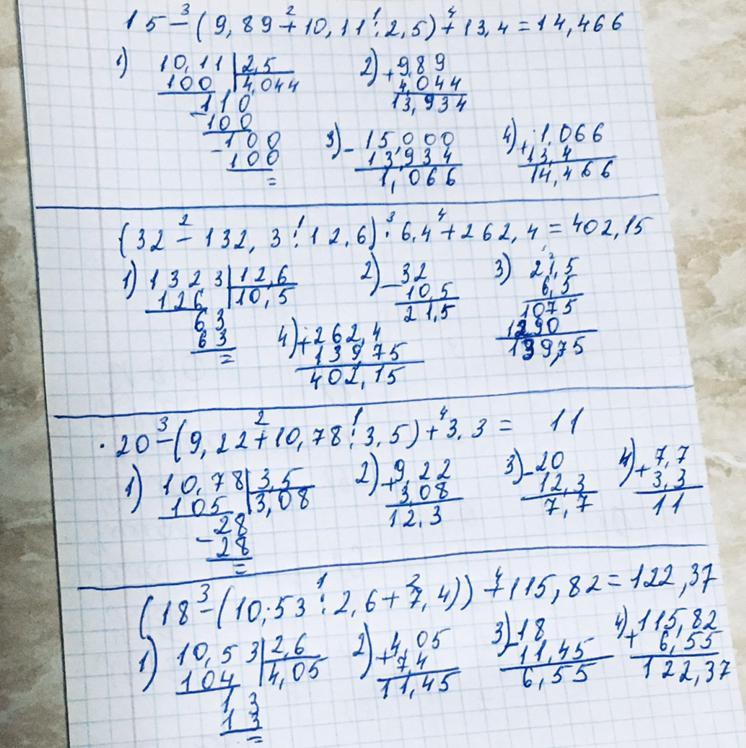 15 - (9,89 + 10,11 : 2,5) + 13,4 = 14,466
3 2 1 4
1) 10,11 | 2,5
100 | 4,044
- 110
100
- 100
- 100
=
2) + 9,89
4,044
13,934
3) - 15,000
13,934
1,066
4) + 1,066
13,4
14,466
(32 - 132,3 : 12,6) · 6,4 + 262,4 = 402,15
2 1 3 4
1) 132 3 | 12,6
126 | 10,5
63
63
=
2) - 32
10,5
21,5
3) 21,5
6,5
1075
1290
139,75
4) + 262,4
139,75
402,15
· 20 - (9,22 + 10,78 : 3,5) + 3,3 = 11
3 2 1 4
1) 10,78 | 3,5
105 | 3,08
- 28
- 28
=
2) + 9,22
3,08
12,3
3) - 20
12,3
7,7
4) + 7,7
3,3
11
(18 - (10,53 : 2,6 + 7,4)) + 115,82 = 122,37
3 1 2 4
1) 10,5 3 | 2,6
104 | 4,05
13
13
=
2) + 4,05
7,4
11,45
3) - 18
11,45
6,55
4) + 115,82
6,55
122,37